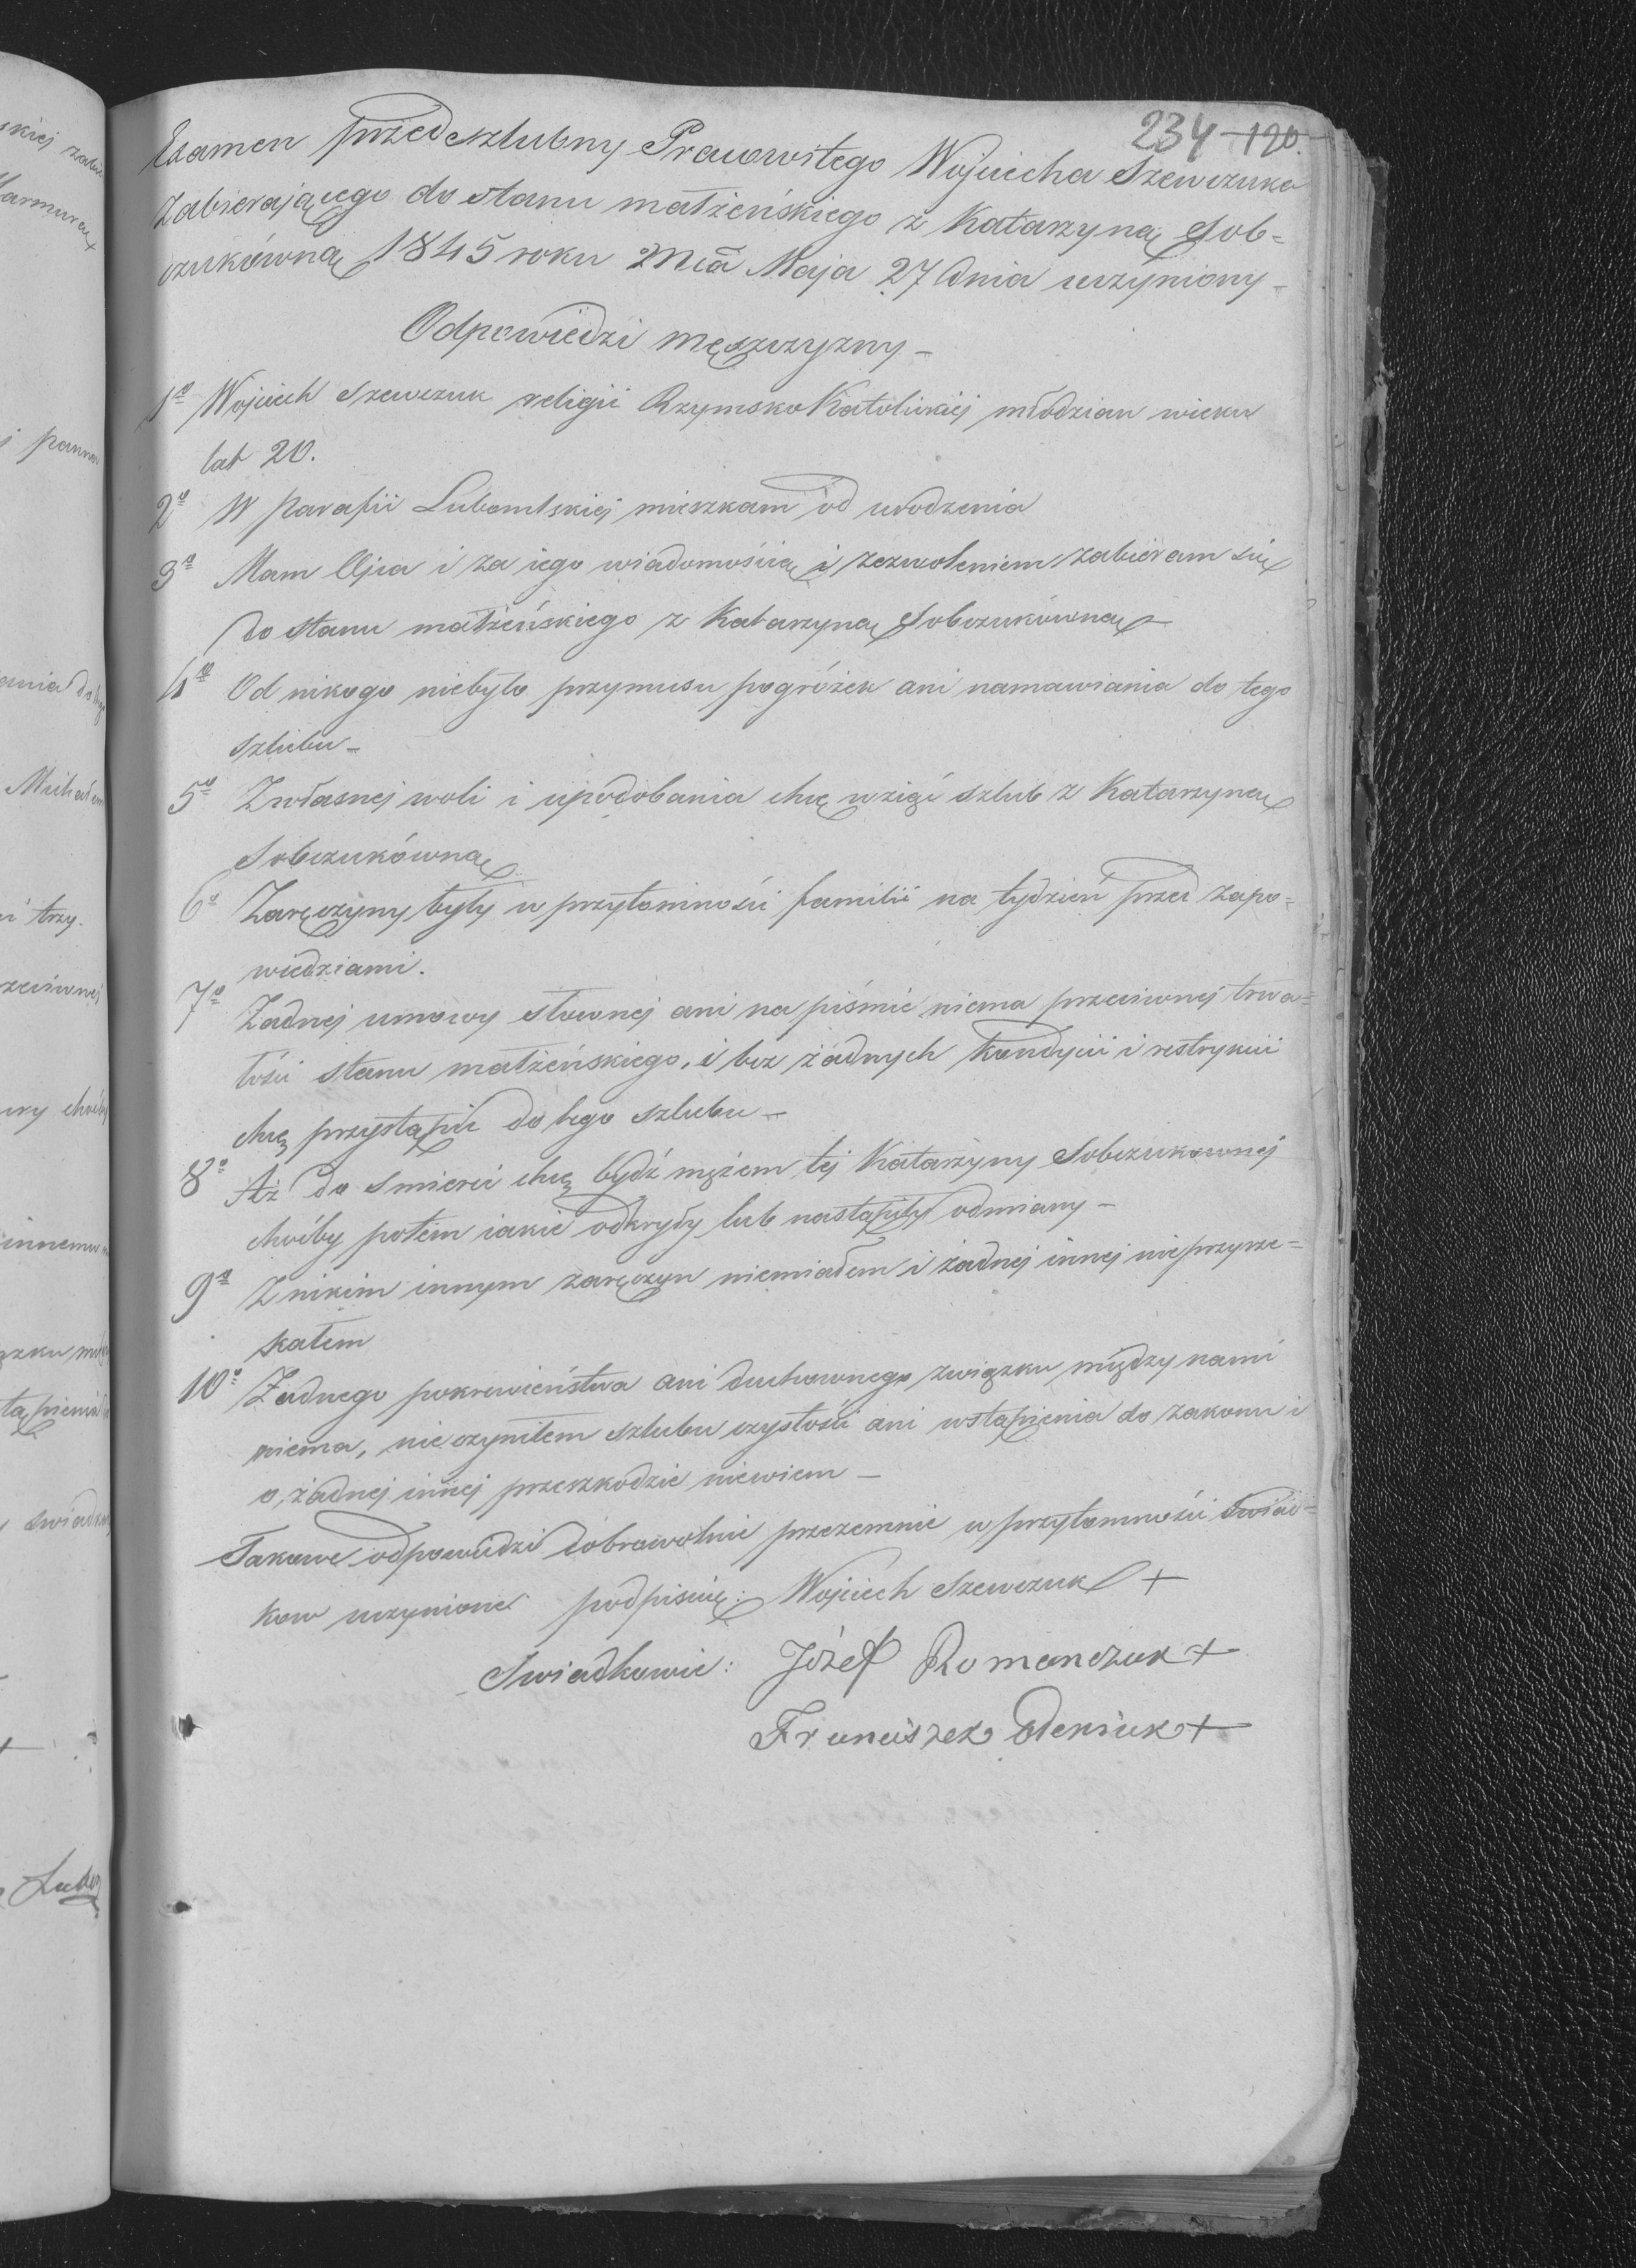 234 120.
Examen przedeszlubny Pracowitego Wojciecha Szewczuka
zabierającego do stanu małżeńskiego z Katarzyną Sob=
czukówną 1845 roku Mca Maja 27 dnia uczyniony –
Odpowiedzi męszczyzny –
1º Wojciech Szewczuk religii Rzymsko Katolickiej młodzian wieku
lat 20.
2º W parafii Lubomlskiej mieszkam od urodzenia
3º Mam Ojca i za iego wiadomością i zezwoleniem zabieram się
do stanu małżeńskiego z Katarzyną Sobczukówną –
4º Od nikogo niebyło przymusu pogróżek ani namawiania do tego
szlubu –
5º Z własnej woli i upodobania chcę wziąć szlub z Katarzyną
Sobczukówną
6º Zaręczyny były w przytomności familii na tydzień przed zapo=
wiedziami.
7º Żadnej umowy słownej ani na piśmie niema przeciwnej trwa=
łości stanu małżeńskiego, i bez żadnych kondycii i restrykcii
chcę przystąpić do tego szlubu –
8º Aż do smierci chcę bydź mężem tej Katarzyny Sobczukownej
choćby potem iakie odkryły lub nastąpiły odmiany –
9º Z nikim innym zaręczyn niemiałem i żadnej innej nieprzyrze=
kałem
10º Żadnego pokrewieństwa ani duchownego związku między nami
niema, nie czyniłem szlubu czystości ani wstąpienia do zakonu i
o żadnej innej przeszkodzie niewiem –
Takowe odpowiedzi dobrowolnie przezemnie w przytomności Swiad=
kow uczynione podpisuię: Wojciech Szewczuk +
Swiadkowie: Józef Romanczuk +
Franciszek Deniuk +